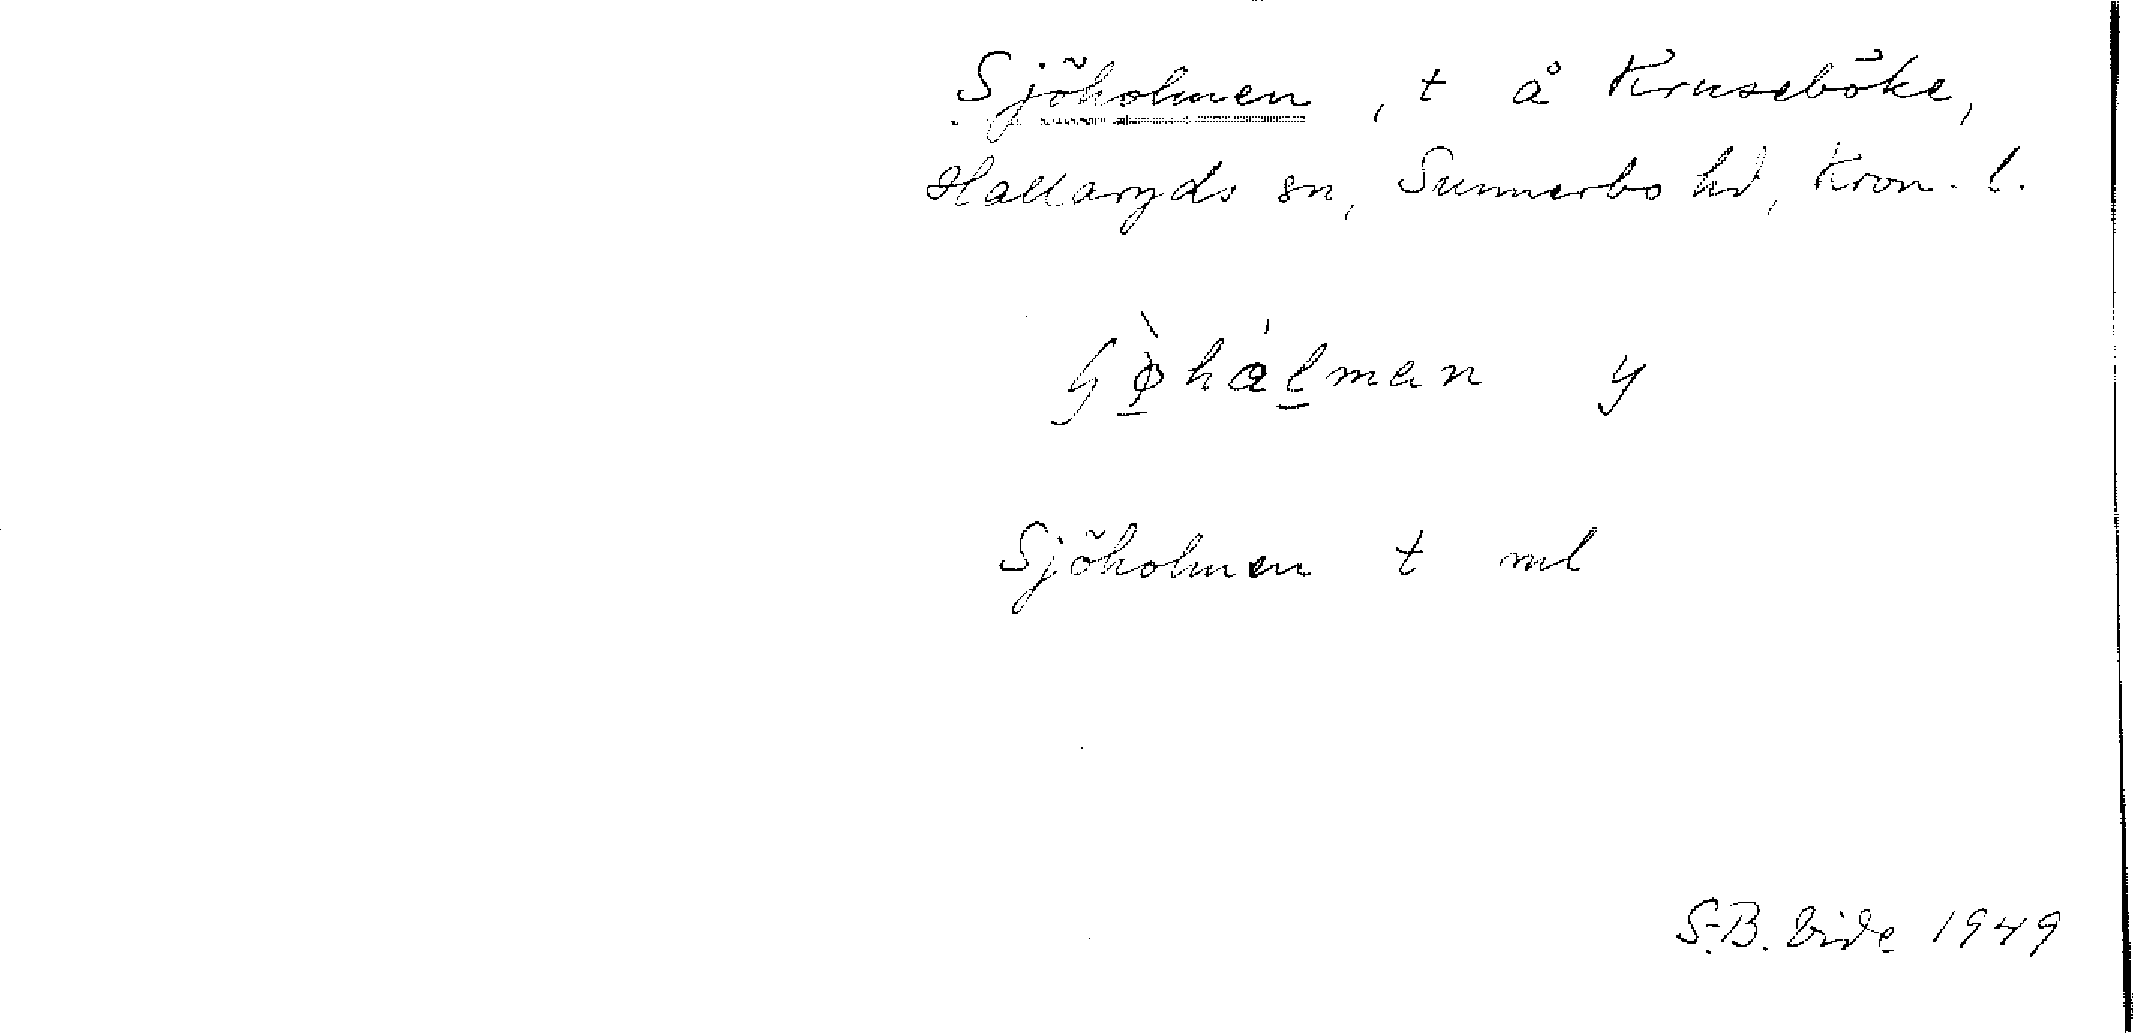 Sjöholmen, t å Kruseböke,
Hallaryds sn, Sunnerbo hd, Kron. l.
ɧø̠̀hál̠man y
Sjöholmen t ml
S.-B. Vide 1949